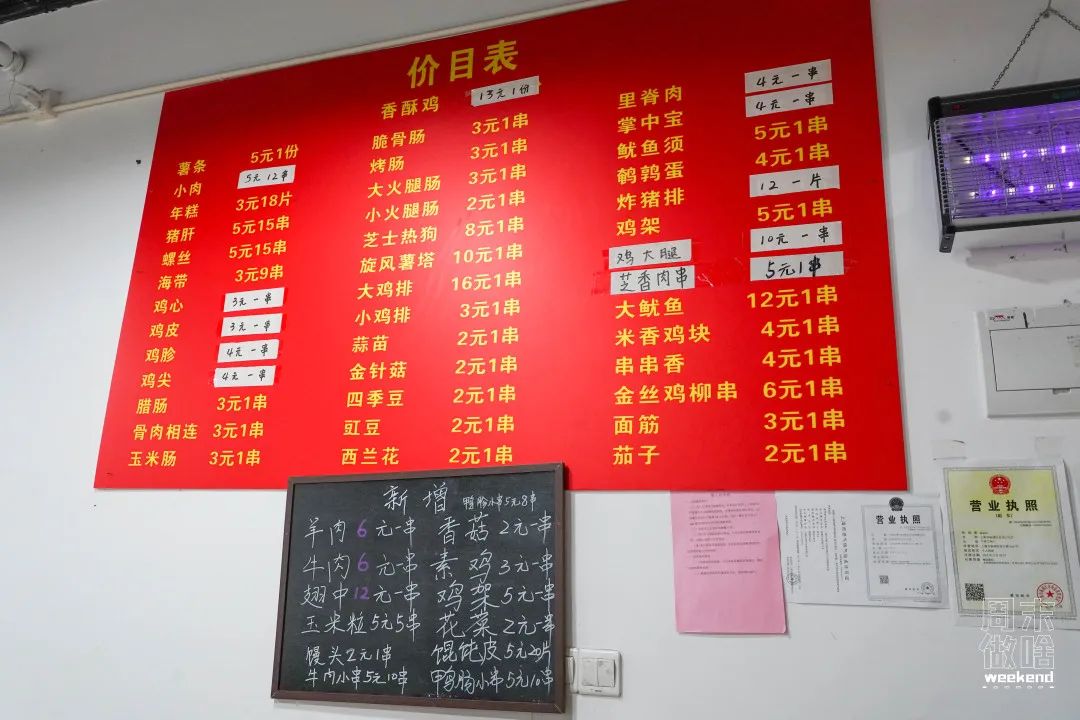 价目表
薯条 5元1份
小肉 5元12串
年糕 3元18片
猪肝 5元15串
螺丝 5元15串
海带 3元9串
鸡心 3元一串
鸡皮 3元一串
鸡胗 4元一串
鸡尖 4元一串
腊肠 3元1串
骨肉相连 3元1串
玉米肠 3元1串
香酥鸡 13元1份
脆骨肠 3元1串
烤肠 3元1串
大火腿肠 3元1串
小火腿肠 2元1串
芝士热狗 8元1串
旋风薯塔 10元1串
大鸡排 16元1串
小鸡排 3元1串
蒜苗 2元1串
金针菇 2元1串
四季豆 2元1串
豇豆 2元1串
西兰花 2元1串
里脊肉 4元一串
掌中宝 4元一串
鱿鱼须 5元1串
鹌鹑蛋 4元1串
炸猪排 12一片
鸡架 5元1串
鸡大腿 10元一串
芝香肉串 5元1串
大鱿鱼 12元1串
米香鸡块 4元1串
串串香 4元1串
金丝鸡柳串 6元1串
面筋 3元1串
茄子 2元1串
新增 鸭肠小串5元8串
羊肉6元一串 香菇2元一串
牛肉6元一串 素鸡3元一串
翅中12元一串 鸡架5元一串
玉米粒5元5串 花菜2元一串
馒头2元1串 馄饨皮5元20片
牛肉小串5元10串 鸭肠小串5元10串
营业执照
营业执照
周末
做啥
weekend